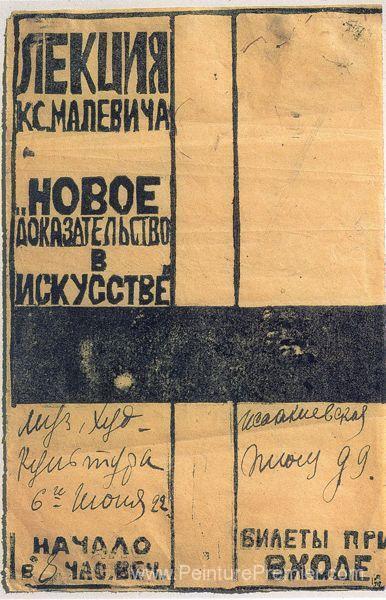 ЛЕКЦИЯ
К.С. МАЛЕВИЧА
„НОВОЕ
ДОКАЗАТЕЛЬСТВО
В
ИСКУССТВЕ"
Муз, Худ-
Культура
6ᵍᵒ Июня 22
Исаакиевская
площ 99.
НАЧАЛО
В 8 ЧАС. ВЕЧ.
БИЛЕТЫ ПРИ
ВХОДЕ.
www.PeinturePremier.com